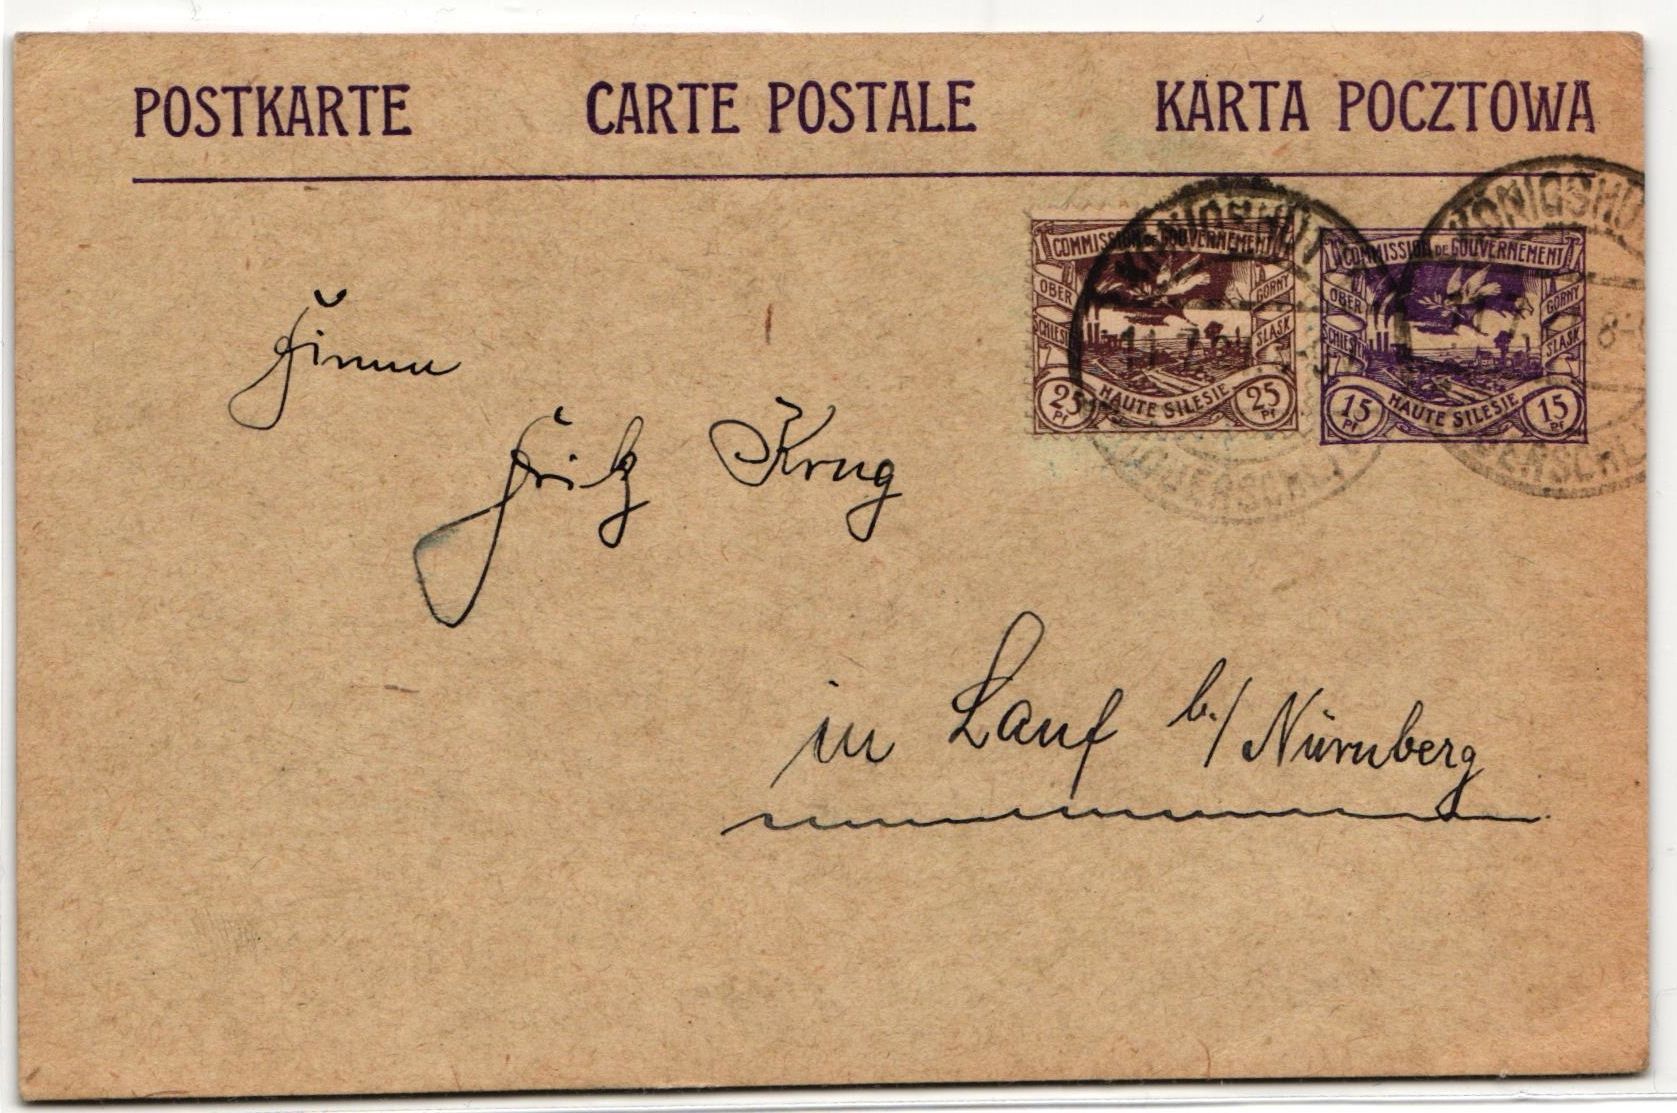 POSTKARTE CARTE POSTALE KARTA POCZTOWA
COMMISSION DE GOUVERNEMENT
OBER SCHLESIEN
GORNY SLASK
HAUTE SILESIE
25 Pf 25 Pf
COMMISSION DE GOUVERNEMENT
OBER SCHLESIEN
GORNY SLASK
HAUTE SILESIE
15 Pf 15 Pf
KÖNIGSHÜ
Firma
Fritz Krug
in Lauf b./Nürnberg